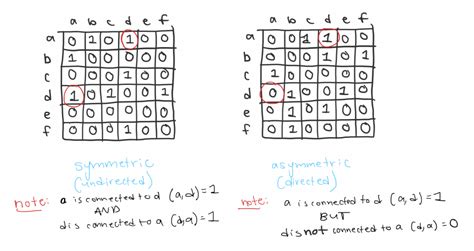 a b c d e f a b c d e f
a 0 1 0 1 0 0 a 0 0 1 1 0 0
b 1 0 0 0 0 0 b 0 0 0 1 0 1
c 0 0 0 1 0 0 c 1 0 0 0 0 0
d 1 0 1 0 0 1 d 0 1 0 0 1 1
e 0 0 0 0 0 0 e 0 1 0 0 0 0
f 0 0 0 1 0 0 f 0 0 0 1 0 0
symmetric asymmetric
(undirected) (directed)
note: a is connected to d (a,d)=1 note: a is connected to d (a,d)=1
AND BUT
d is connected to a (d,a)=1 d is not connected to a (d,a)=0